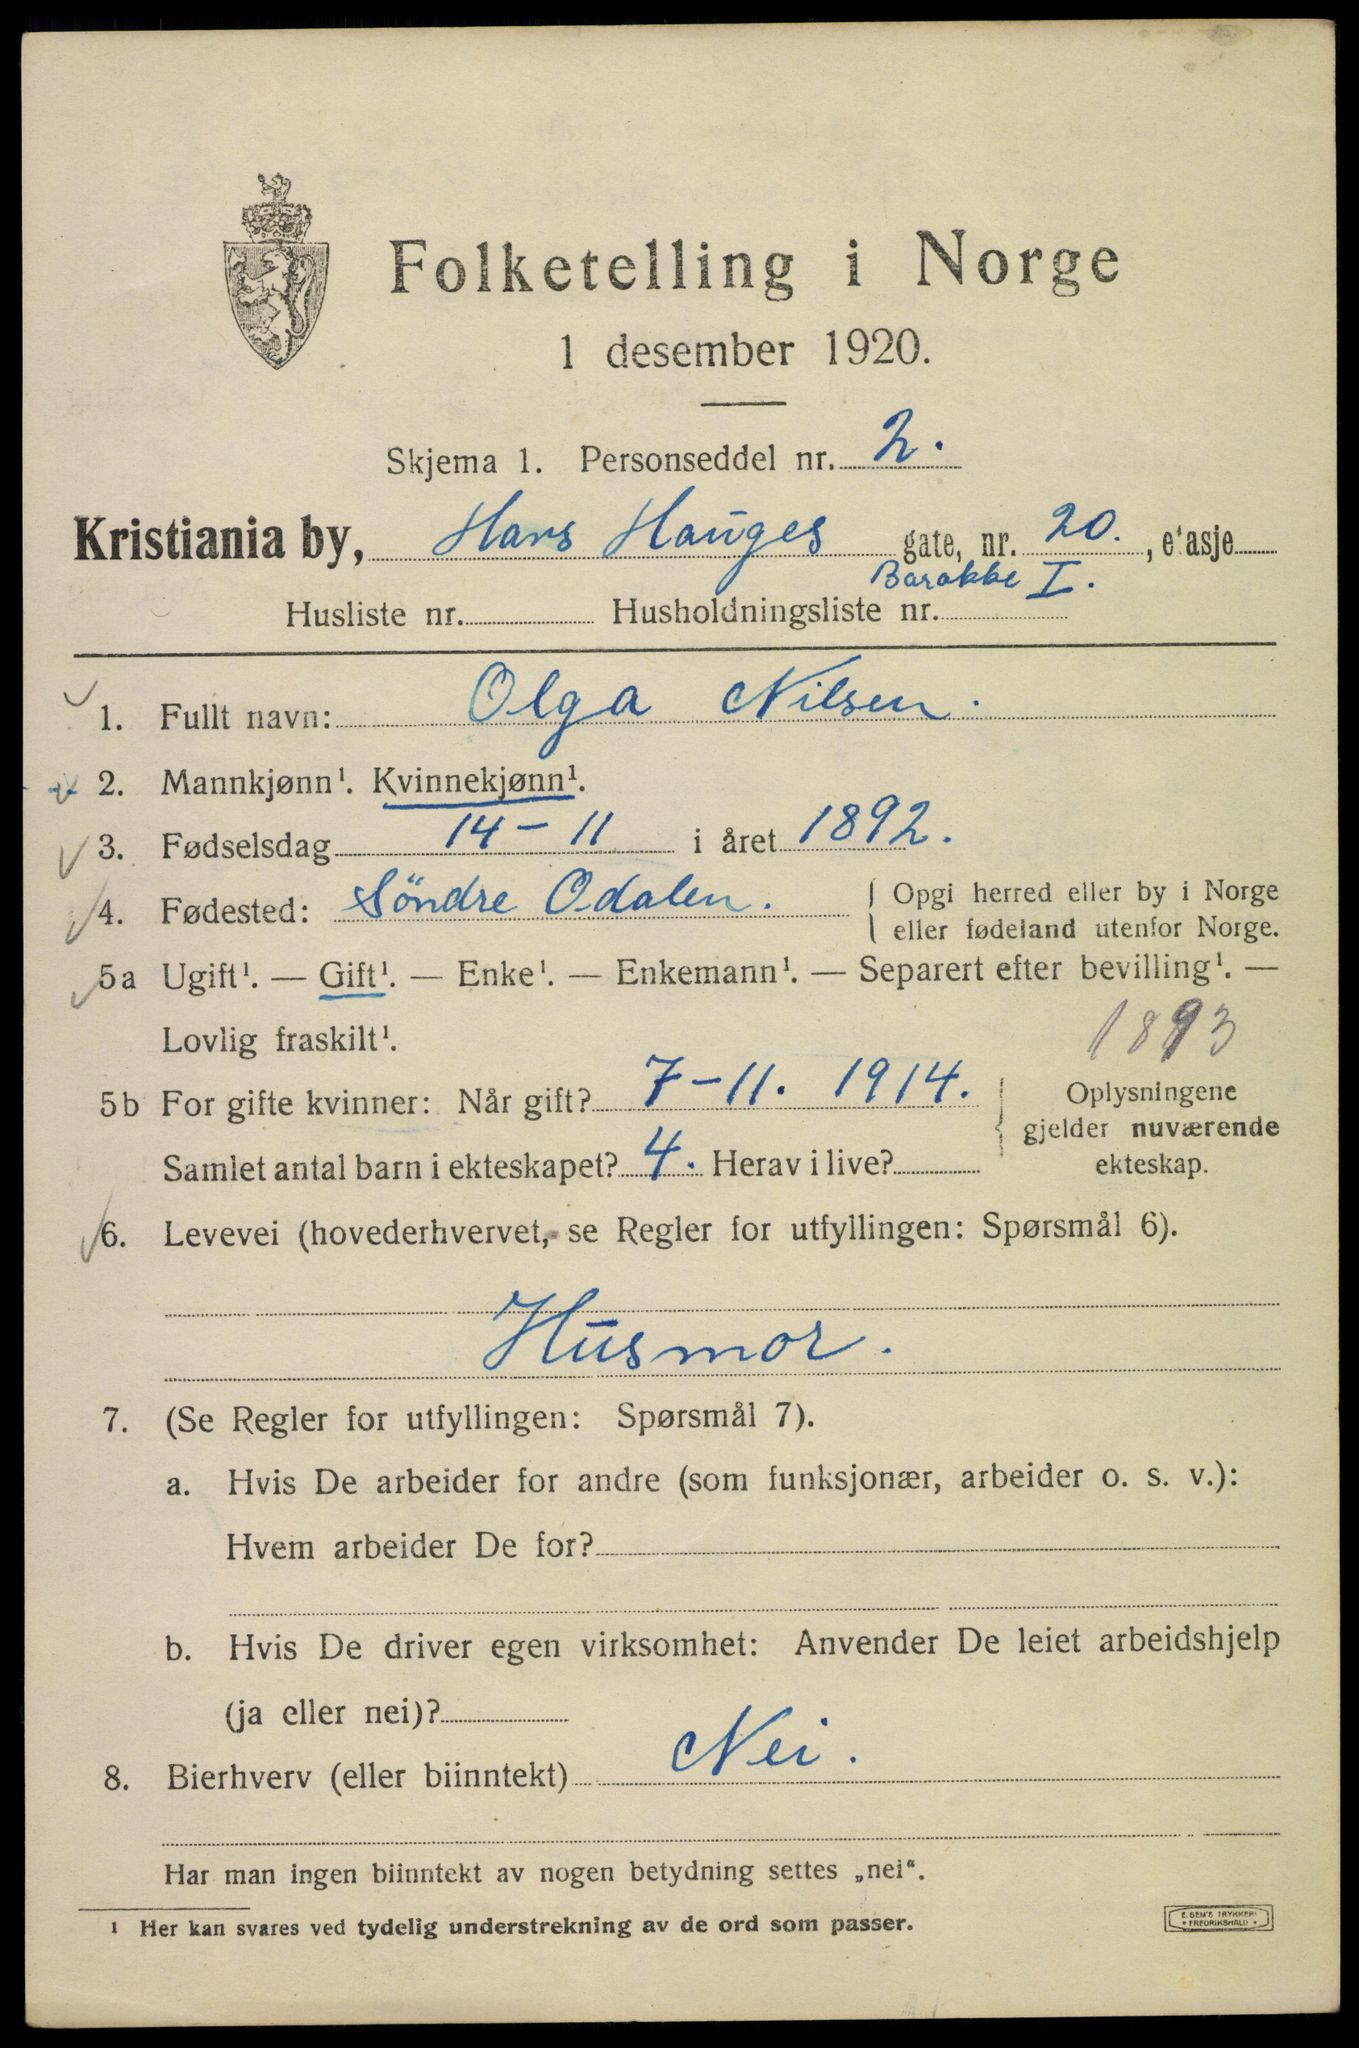 Folketelling i Norge
1 desember 1920.
Skjema 1. Personseddel nr. 2.
Kristiania by, Hans Hauges gate, nr. 20. , etasje
Barakke I.
Husliste nr. Husholdningsliste nr.
1. Fullt navn: Olga Nilsen.
2. Mannkjønn¹. Kvinnekjønn¹.
3. Fødselsdag 14 - 11 i året 1892.
4. Fødested: Söndre Odalen. { Opgi herred eller by i Norge
eller fødeland utenfor Norge.
5a Ugift¹. — Gift¹. — Enke¹. — Enkemann¹. — Separert efter bevilling¹. —
Lovlig fraskilt¹. 1893
5b For gifte kvinner: Når gift? 7-11. 1914. { Oplysningene
gjelder nuværende
Samlet antal barn i ekteskapet? 4. Herav i live? ekteskap.
6. Levevei (hovederhvervet, se Regler for utfyllingen: Spørsmål 6).
Husmor.
7. (Se Regler for utfyllingen: Spørsmål 7).
a. Hvis De arbeider for andre (som funksjonær, arbeider o. s. v.):
Hvem arbeider De for?
b. Hvis De driver egen virksomhet: Anvender De leiet arbeidshjelp
(ja eller nei)?
8. Bierhverv (eller biinntekt) Nei.
Har man ingen biinntekt av nogen betydning settes „nei“.
¹ Her kan svares ved tydelig understrekning av de ord som passer.
E. SEM'S TRYKKERI
• FREDRIKSHALD •